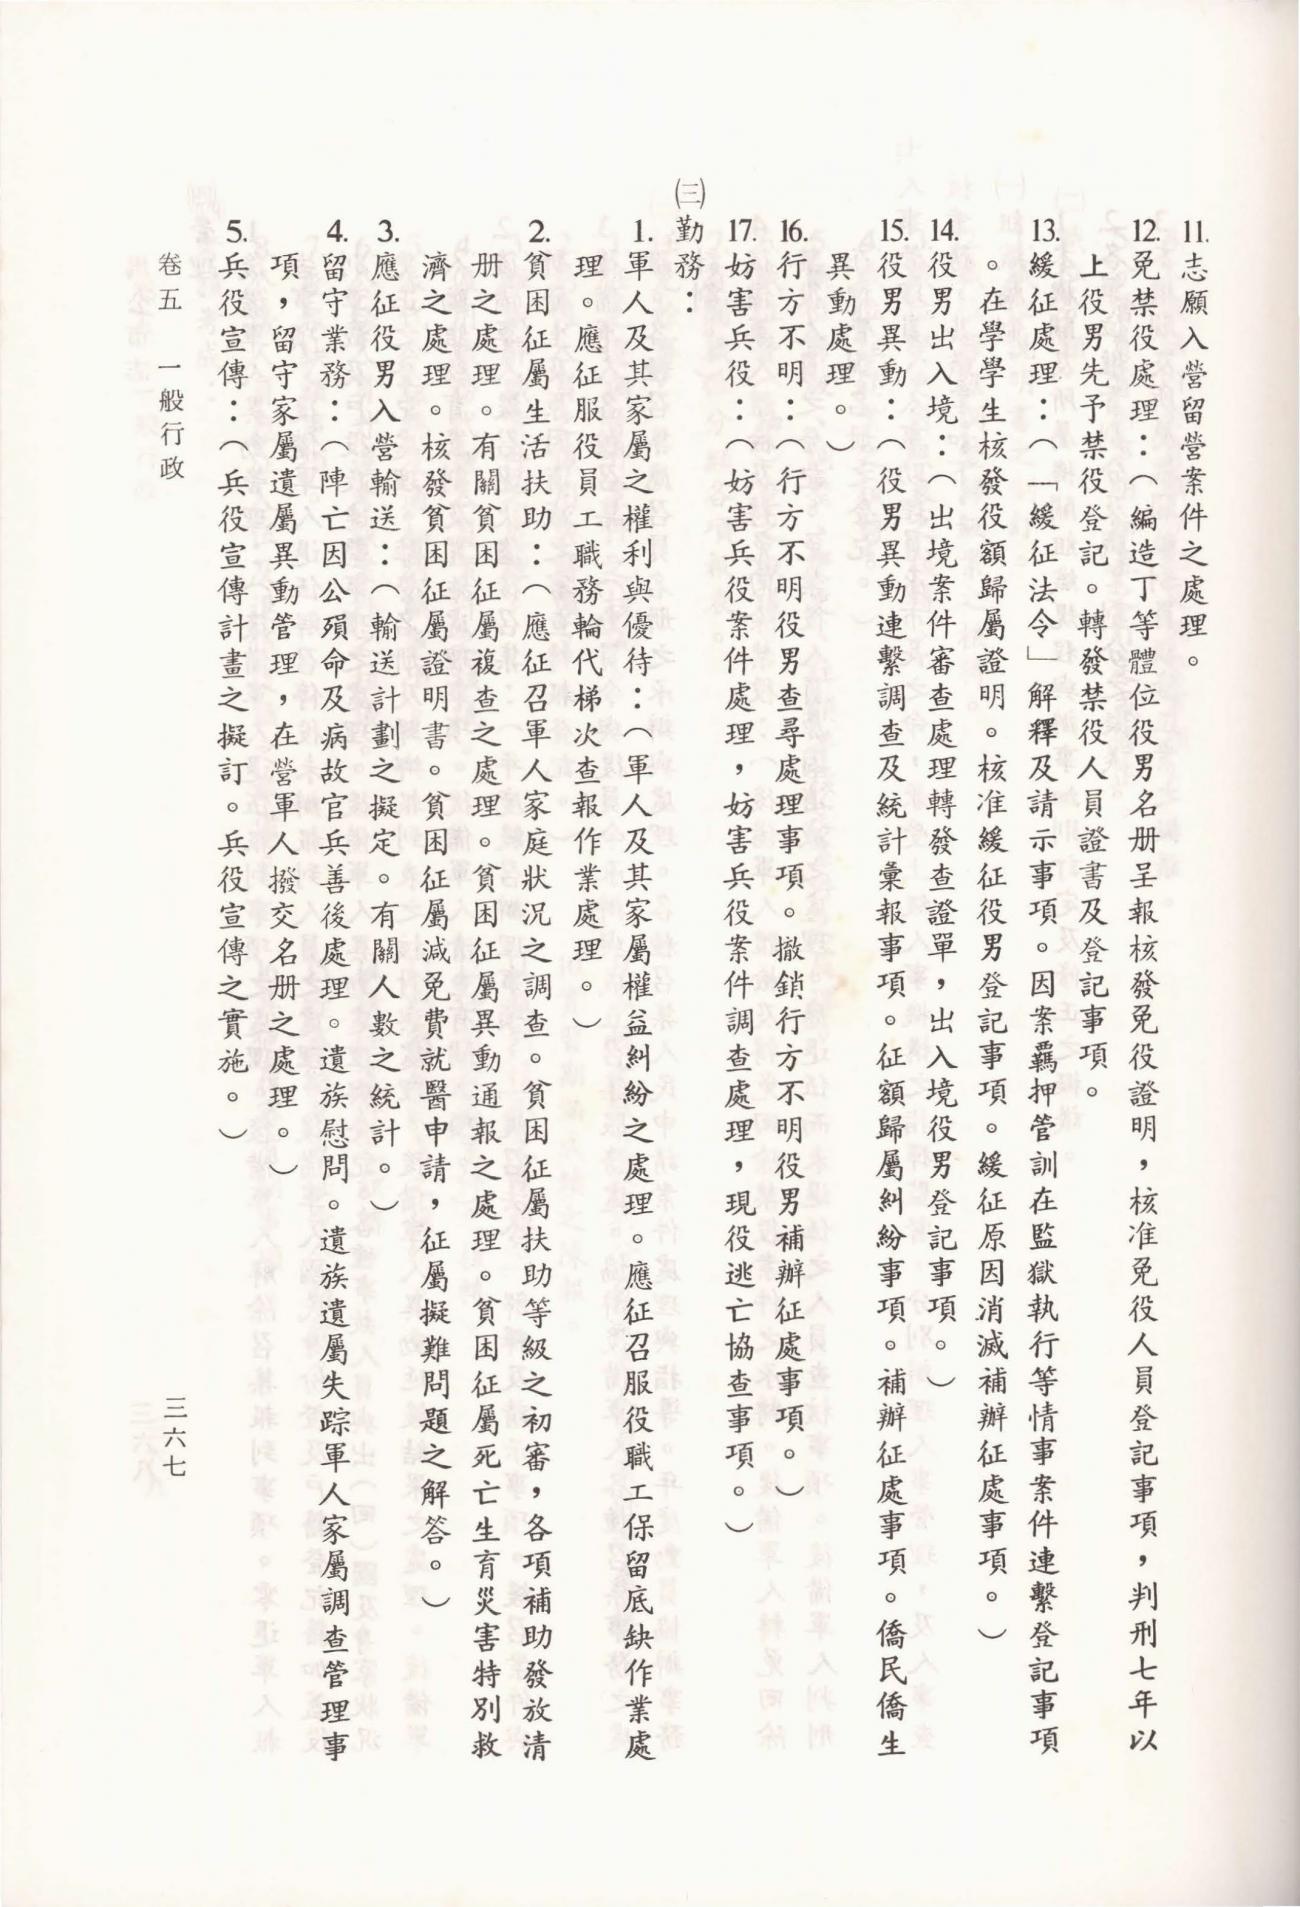 11.志願入營留營案件之處理。
12.免禁役處理：（編造丁等體位役男名册呈報核發免役證明，核准免役人員登記事項，判刑七年以
上役男先予禁役登記。轉發禁役人員證書及登記事項。
13.緩征處理：（「緩征法令」解釋及請示事項。因案羈押管訓在監獄執行等情事案件連繫登記事項
。在學學生核發役額歸屬證明。核准緩征役男登記事項。緩征原因消滅補辦征處事項。）
14.役男出入境：（出境案件審查處理轉發查證單，出入境役男登記事項。）
15.役男異動：（役男異動連繫調查及統計彙報事項。征額歸屬糾紛事項。補辦征處事項。僑民僑生
異動處理。）
16.行方不明：（行方不明役男查尋處理事項。撤銷行方不明役男補辦征處事項。）
17.妨害兵役：（妨害兵役案件處理，妨害兵役案件調查處理，現役逃亡協查事項。）
㈢勤務：
1.軍人及其家屬之權利與優待：（軍人及其家屬權益糾紛之處理。應征召服役職工保留底缺作業處
理。應征服役員工職務輪代梯次查報作業處理。）
2.貧困征屬生活扶助：（應征召軍人家庭狀況之調查。貧困征屬扶助等級之初審，各項補助發放清
册之處理。有關貧困征屬複查之處理。貧困征屬異動通報之處理。貧困征屬死亡生育災害特別救
濟之處理。核發貧困征屬證明書。貧困征屬減免費就醫申請，征屬擬難問題之解答。）
3.應征役男入營輸送：（輸送計劃之擬定。有關人數之統計。）
4.留守業務：（陣亡因公殞命及病故官兵善後處理。遺族慰問。遺族遺屬失踪軍人家屬調查管理事
項，留守家屬遺屬異動管理，在營軍人撥交名册之處理。）
5.兵役宣傳：（兵役宣傳計畫之擬訂。兵役宣傳之實施。）
卷五　一般行政
三六七